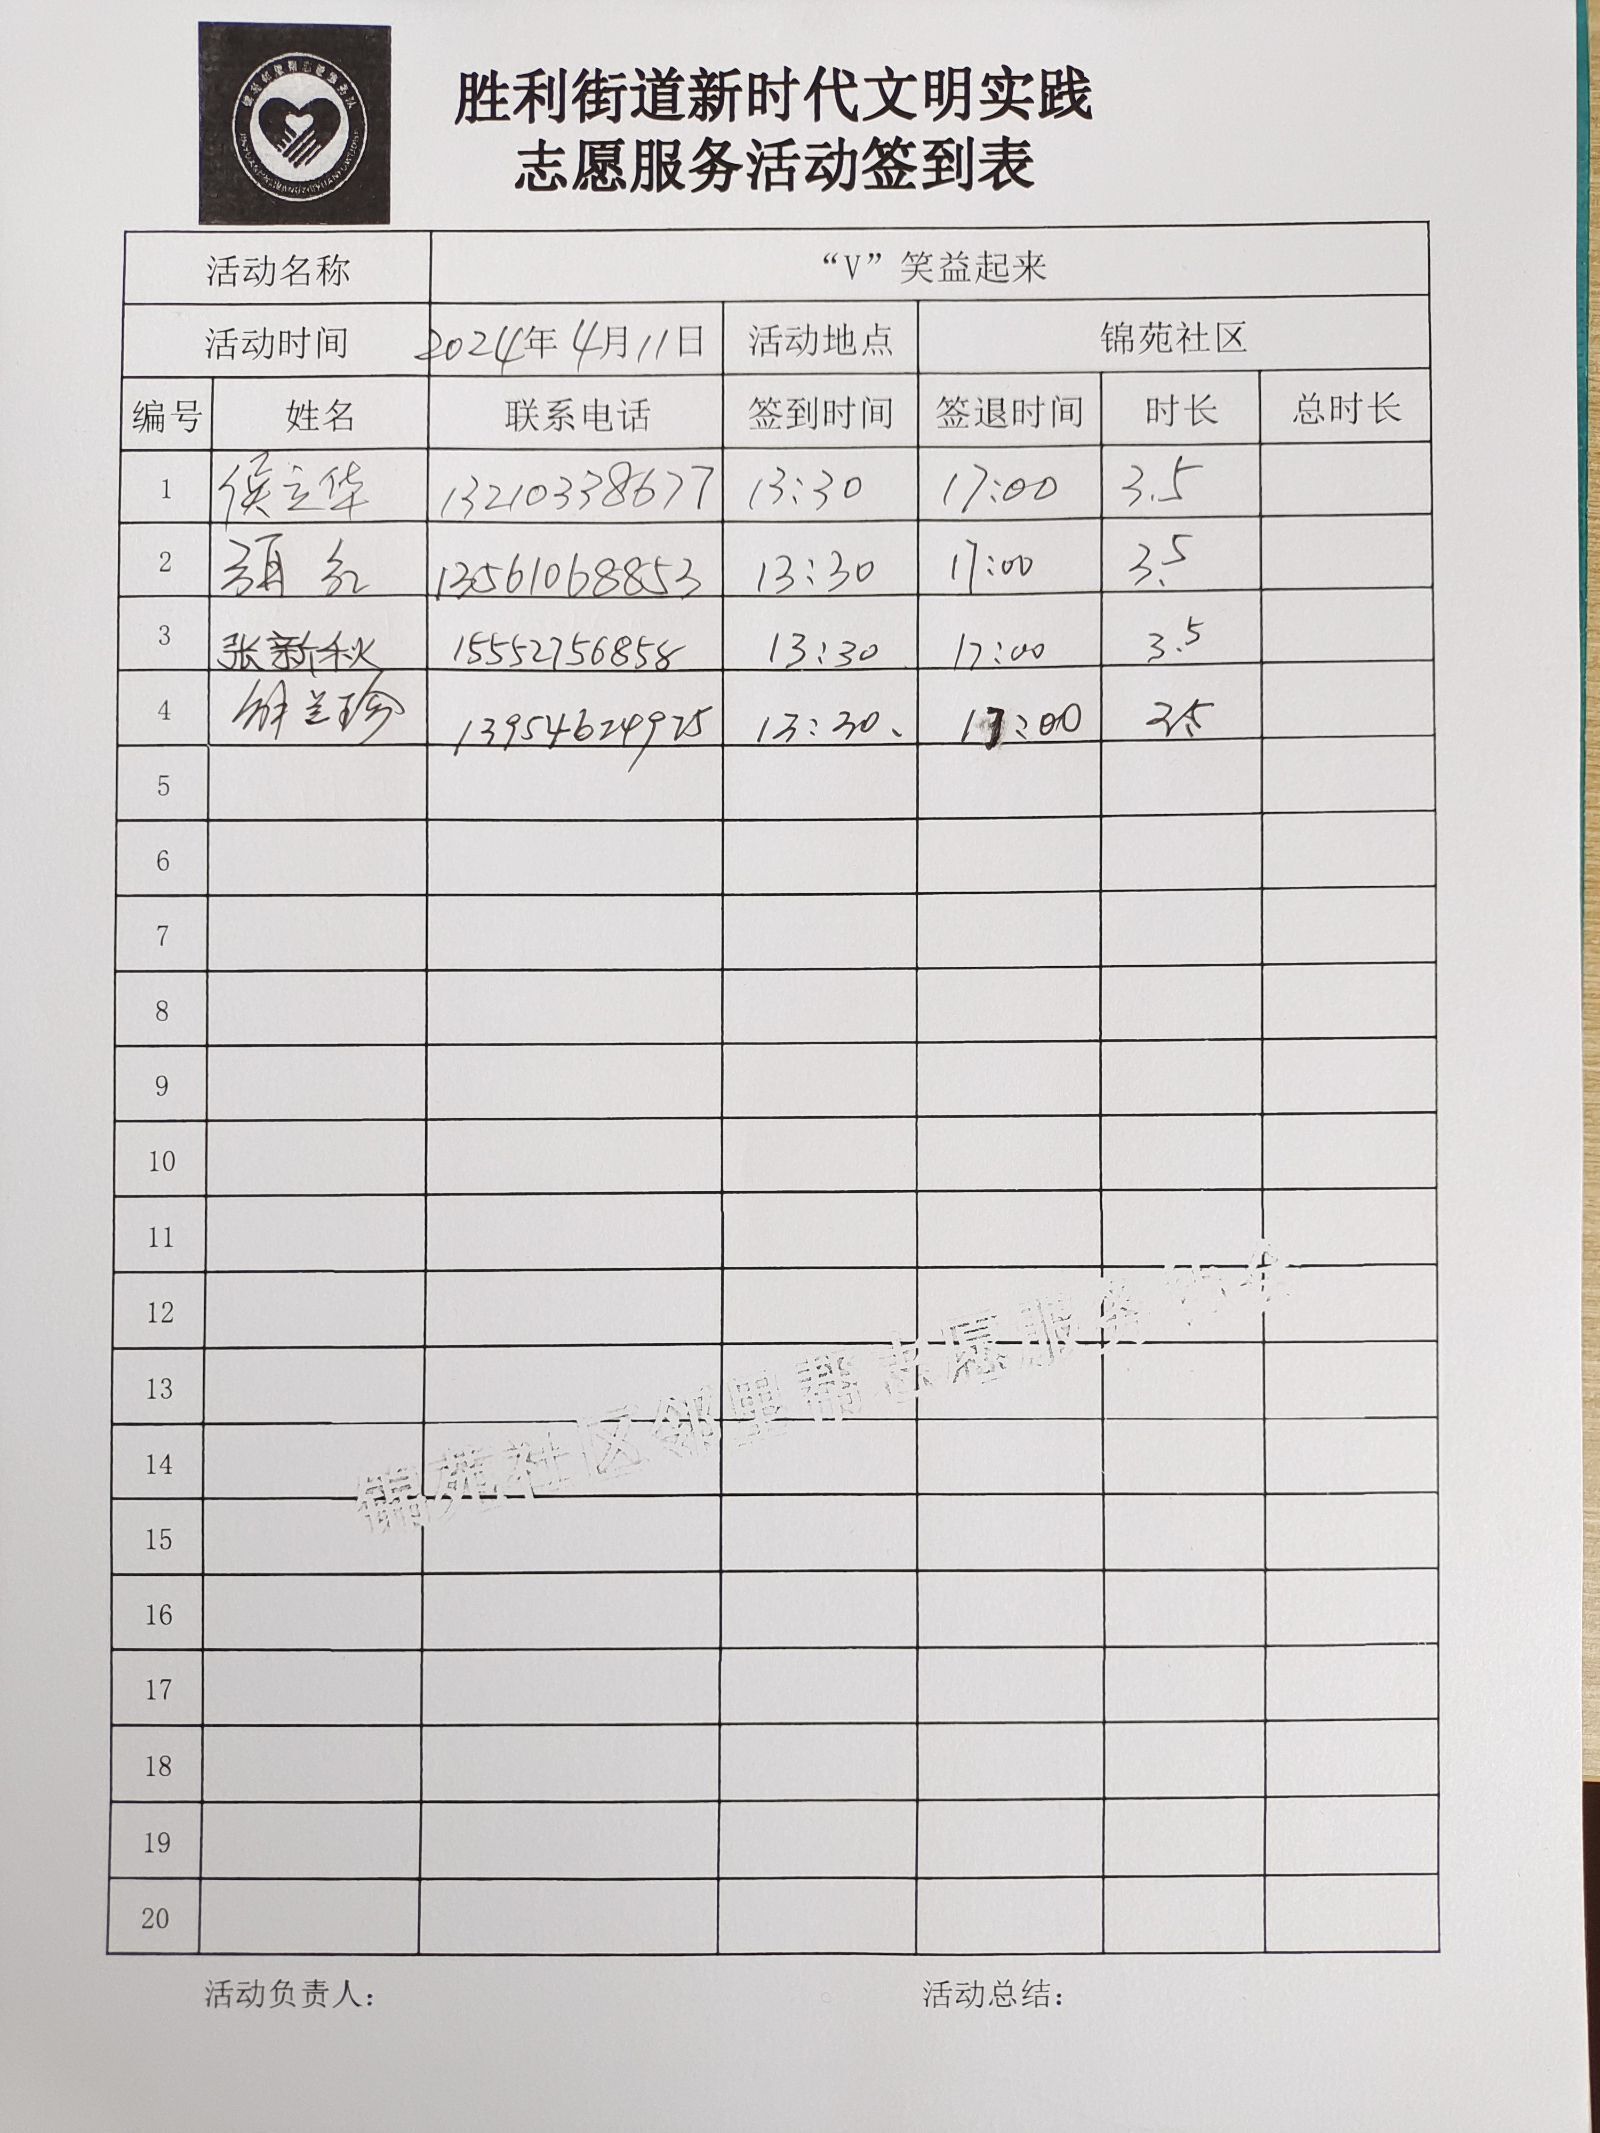 胜利街道新时代文明实践
志愿服务活动签到表
活动名称 “V”笑益起来
活动时间 2024年4月11日 活动地点 锦苑社区
编号 姓名 联系电话 签到时间 签退时间 时长 总时长
1 侯立华 13210338677 13:30 17:00 3.5
2 红 13561068853 13:30 17:00 3.5
3 张新秋 15552756858 13:30 17:00 3.5
4 兰珍 13954624925 13:30、 17:00 3.5
5
6
7
8
9
10
11
12
13
14
15
16
17
18
19
20
锦苑社区邻里帮志愿服务
活动负责人：
活动总结：